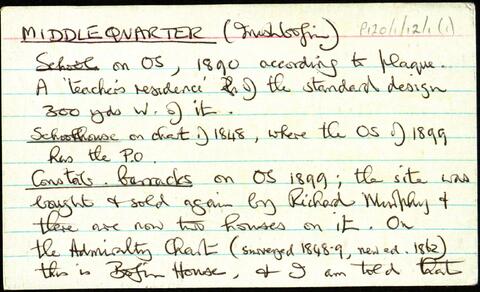 MIDDLEQUARTER (Inishbofin) P120/1/12/1(1)
School on OS, 1890 according to plaque.
A 'teacher's residence' of the standard design
300 yds W. of it.
Schoolhouse on chart of 1848, where the OS of 1899
has the P.O.
Constab. barracks on OS 1899; the site was
bought & sold again by Richard Murphy &
there are now two houses on it. On
the Admiralty Chart (surveyed 1848-9, new ed. 1862)
this is Bofin House, & I am told that